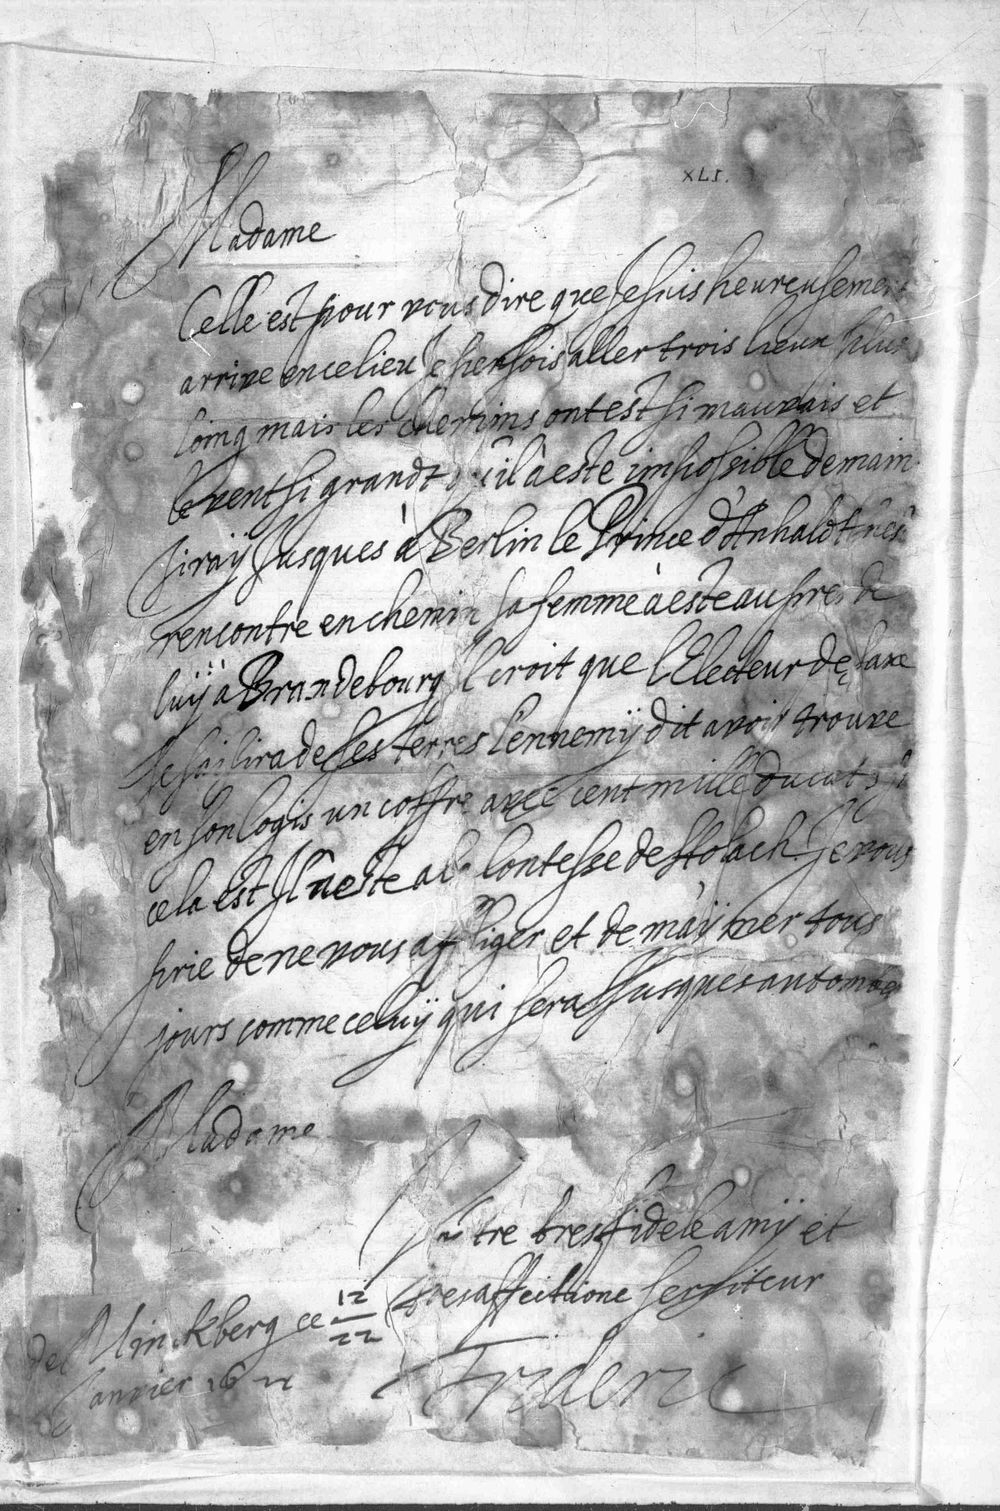 XLI.
Madame
Celle est pour vous dire que Je suis heureusement
arrive en ce lieu Je pensois aller trois lieux plus
loing mais les chemins ont est si mauvais et
le vent si grandt qu'il a este impossible demain
J'iraÿ Jusques à Berlin le Prince d'Anhaldt
rencontre en chemin sa femme à este aupres de
luÿ à Brandebourg Il croit que l'Electeur de Saxe
se saisira de ses terres l'ennemÿ dit avoir trouve
en son logis un coffre avec cent mille ducats si
cela est Il este a la Contesse de Slolach Je vous
prie de ne vous affliger et de m'aÿmer tous
jours comme celuÿ qui sera Jusques au tombeau
Madame
Vostre tres fidele amÿ et
tres affectione serviteur
de Minckberg ce 12/22
Janvier 16
Frideric